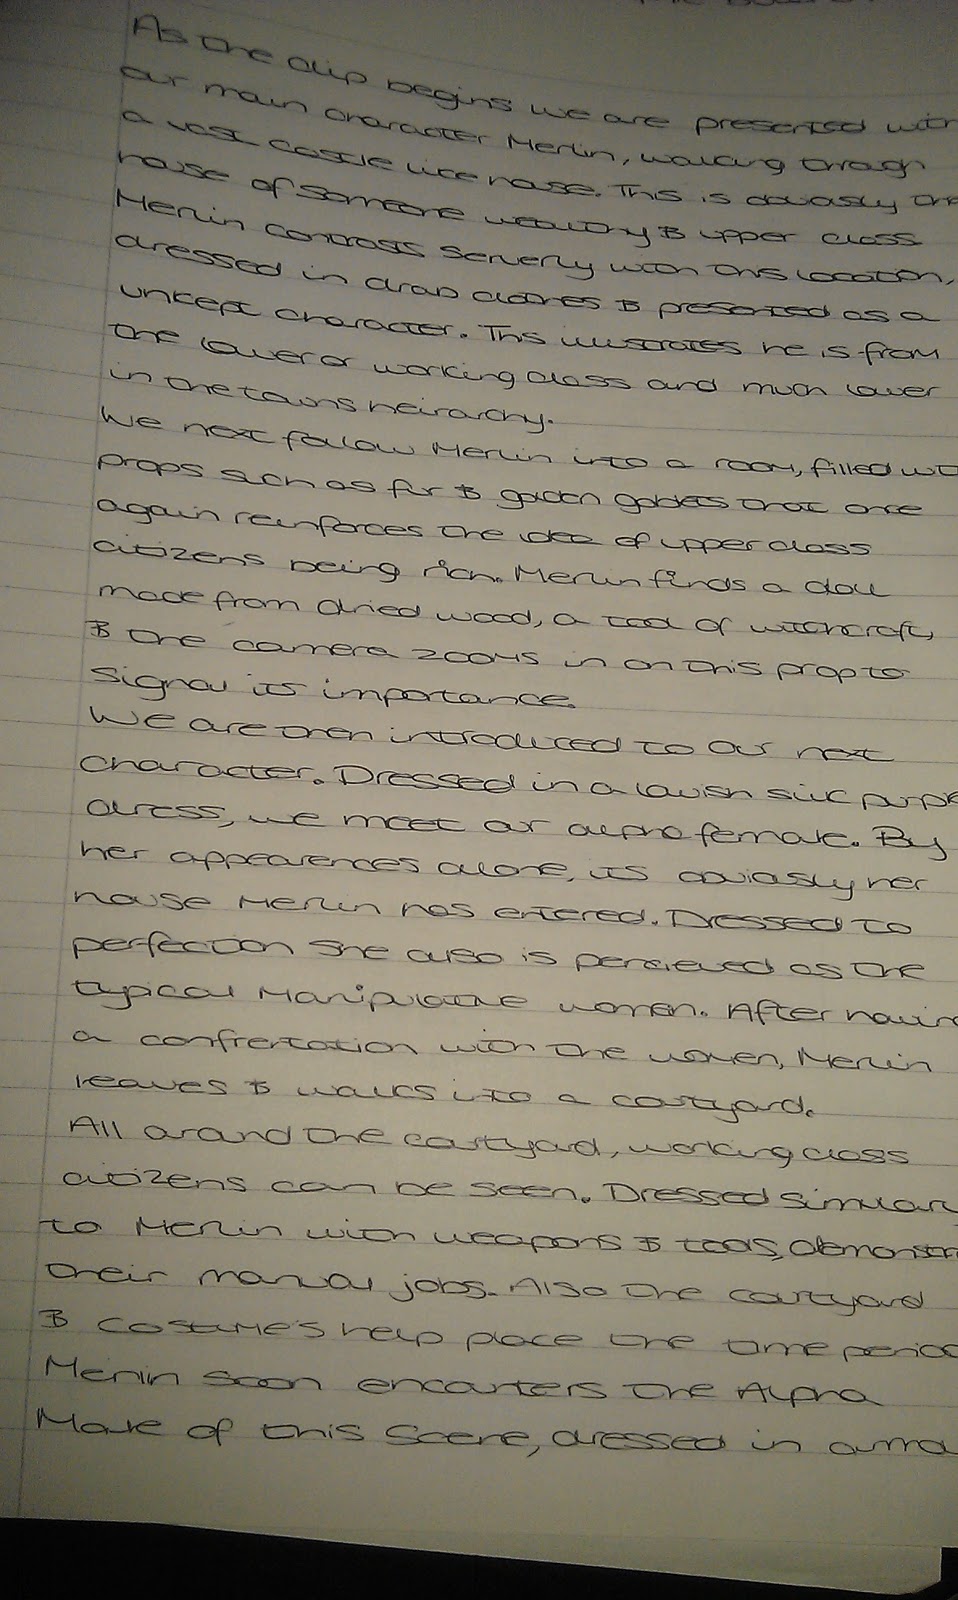 As the clip begins we are presented with
our main character Merlin, walking through
a vast castle like house. This is obviously the
house of someone wealthy & upper class
Merlin contrasts serverly with this location,
dressed in drab clothes & presented as a
unkept character. This illustrates he is from
the lower or working class and much lower
in the towns heirarchy.
We next follow Merlin into a room, filled wit
props such as fur & golden goblets that once
again reinforces the idea of upper class
citizens being rich. Merlin finds a doll
made from dried wood, a tool of witchcraft,
& the camera zooms in on this prop to
signal its importance.
We are then introduced to our next
character. Dressed in a lavish silk purple
dress, we meet our alpha female. By
her appearences alone, its obviously her
house Merlin has entered. Dressed to
perfection she also is percieved as the
typical Manipulative women. After having
a confrentation with the women, Merlin
leaves & walks into a courtyard.
All around the courtyard, working class
citizens can be seen. Dressed similary
to Merlin with weapons & tools, demonstra
their manual jobs. Also the courtyard
& costume's help place the time period
Merlin soon encounters the Alpha
Male of this scene, dressed in armo